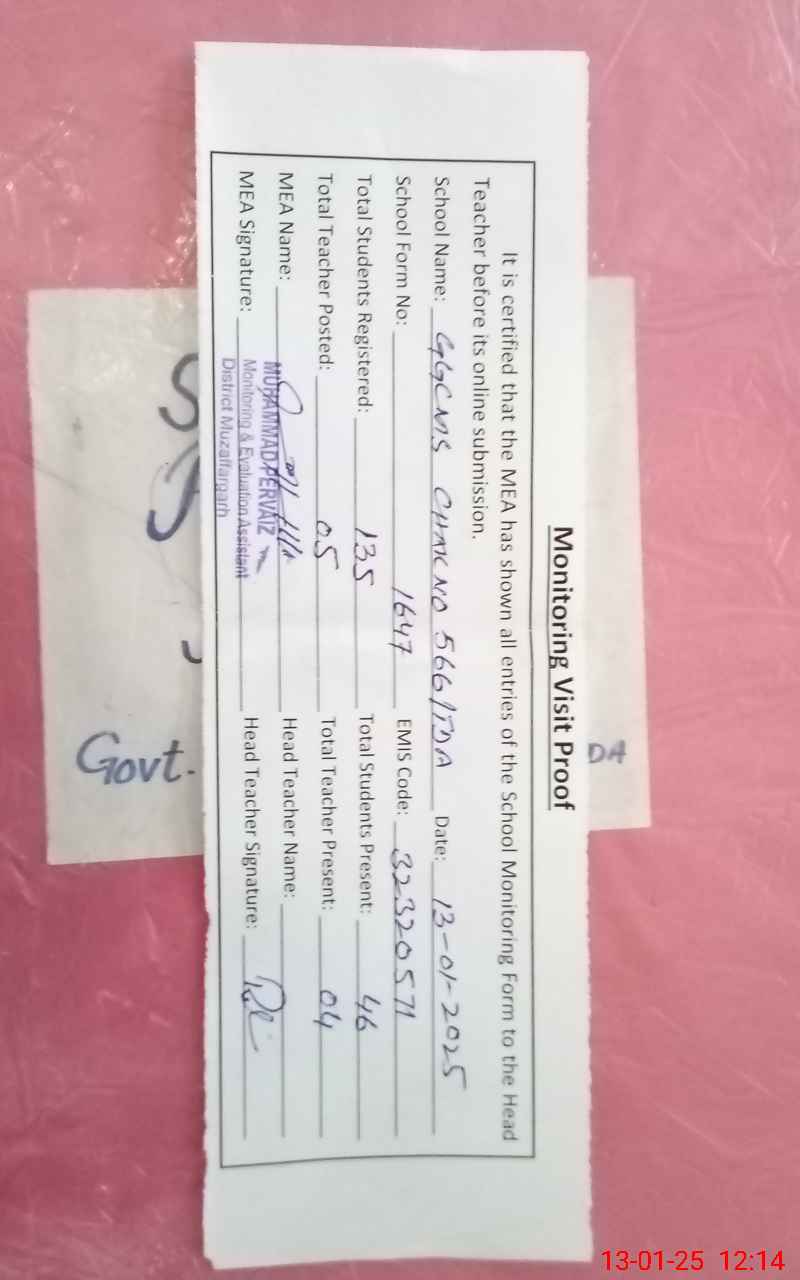 Monitoring Visit Proof
It is certified that the MEA has shown all entries of the School Monitoring Form to the Head
Teacher before its online submission.
School Name: GGCMS CHAK NO 566/TDA Date: 13-01-2025
School Form No: 1647 EMIS Code: 32320571
Total Students Registered: 135 Total Students Present: 46
Total Teacher Posted: 05 Total Teacher Present: 04
MEA Name: Head Teacher Name:
MUHAMMAD PERVAIZ
MEA Signature: Head Teacher Signature:
Monitoring & Evaluation Assistant
District Muzaffargarh
DA
Govt.
13-01-25 12:14